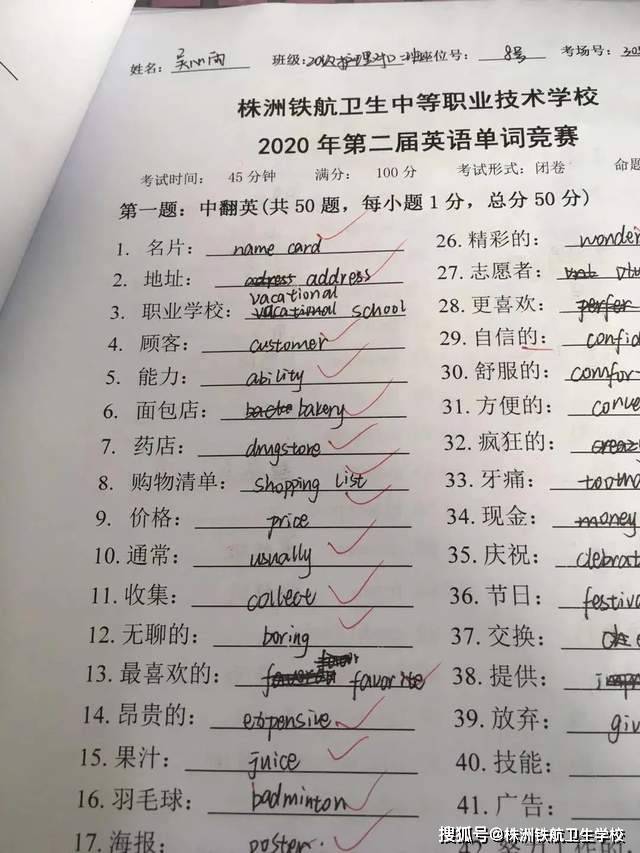 姓名： 班级： 座位号： 8号 考场号：
株洲铁航卫生中等职业技术学校
2020 年第二届英语单词竞赛
考试时间： 45 分钟 满分： 100 分 考试形式：闭卷 命题
第一题：中翻英(共 50 题，每小题 1 分，总分 50 分)
1. 名片： name card
2. 地址： address
3. 职业学校： vacational school
4. 顾客： customer
5. 能力： ability
6. 面包店： bakery
7. 药店： drugstore
8. 购物清单： shopping list
9. 价格： price
10. 通常： usually
11. 收集： collect
12. 无聊的： boring
13. 最喜欢的： favorite
14. 昂贵的： expensive
15. 果汁： juice
16. 羽毛球： badminton
17. 海报： poster
26. 精彩的： wonder
27. 志愿者：
28. 更喜欢： perfer
29. 自信的： confid
30. 舒服的： comfor
31. 方便的： conve
32. 疯狂的：
33. 牙痛： tootha
34. 现金： money
35. 庆祝： clebrat
36. 节日： festiva
37. 交换：
38. 提供：
39. 放弃： giv
40. 技能：
41. 广告：
搜狐号@株洲铁航卫生学校